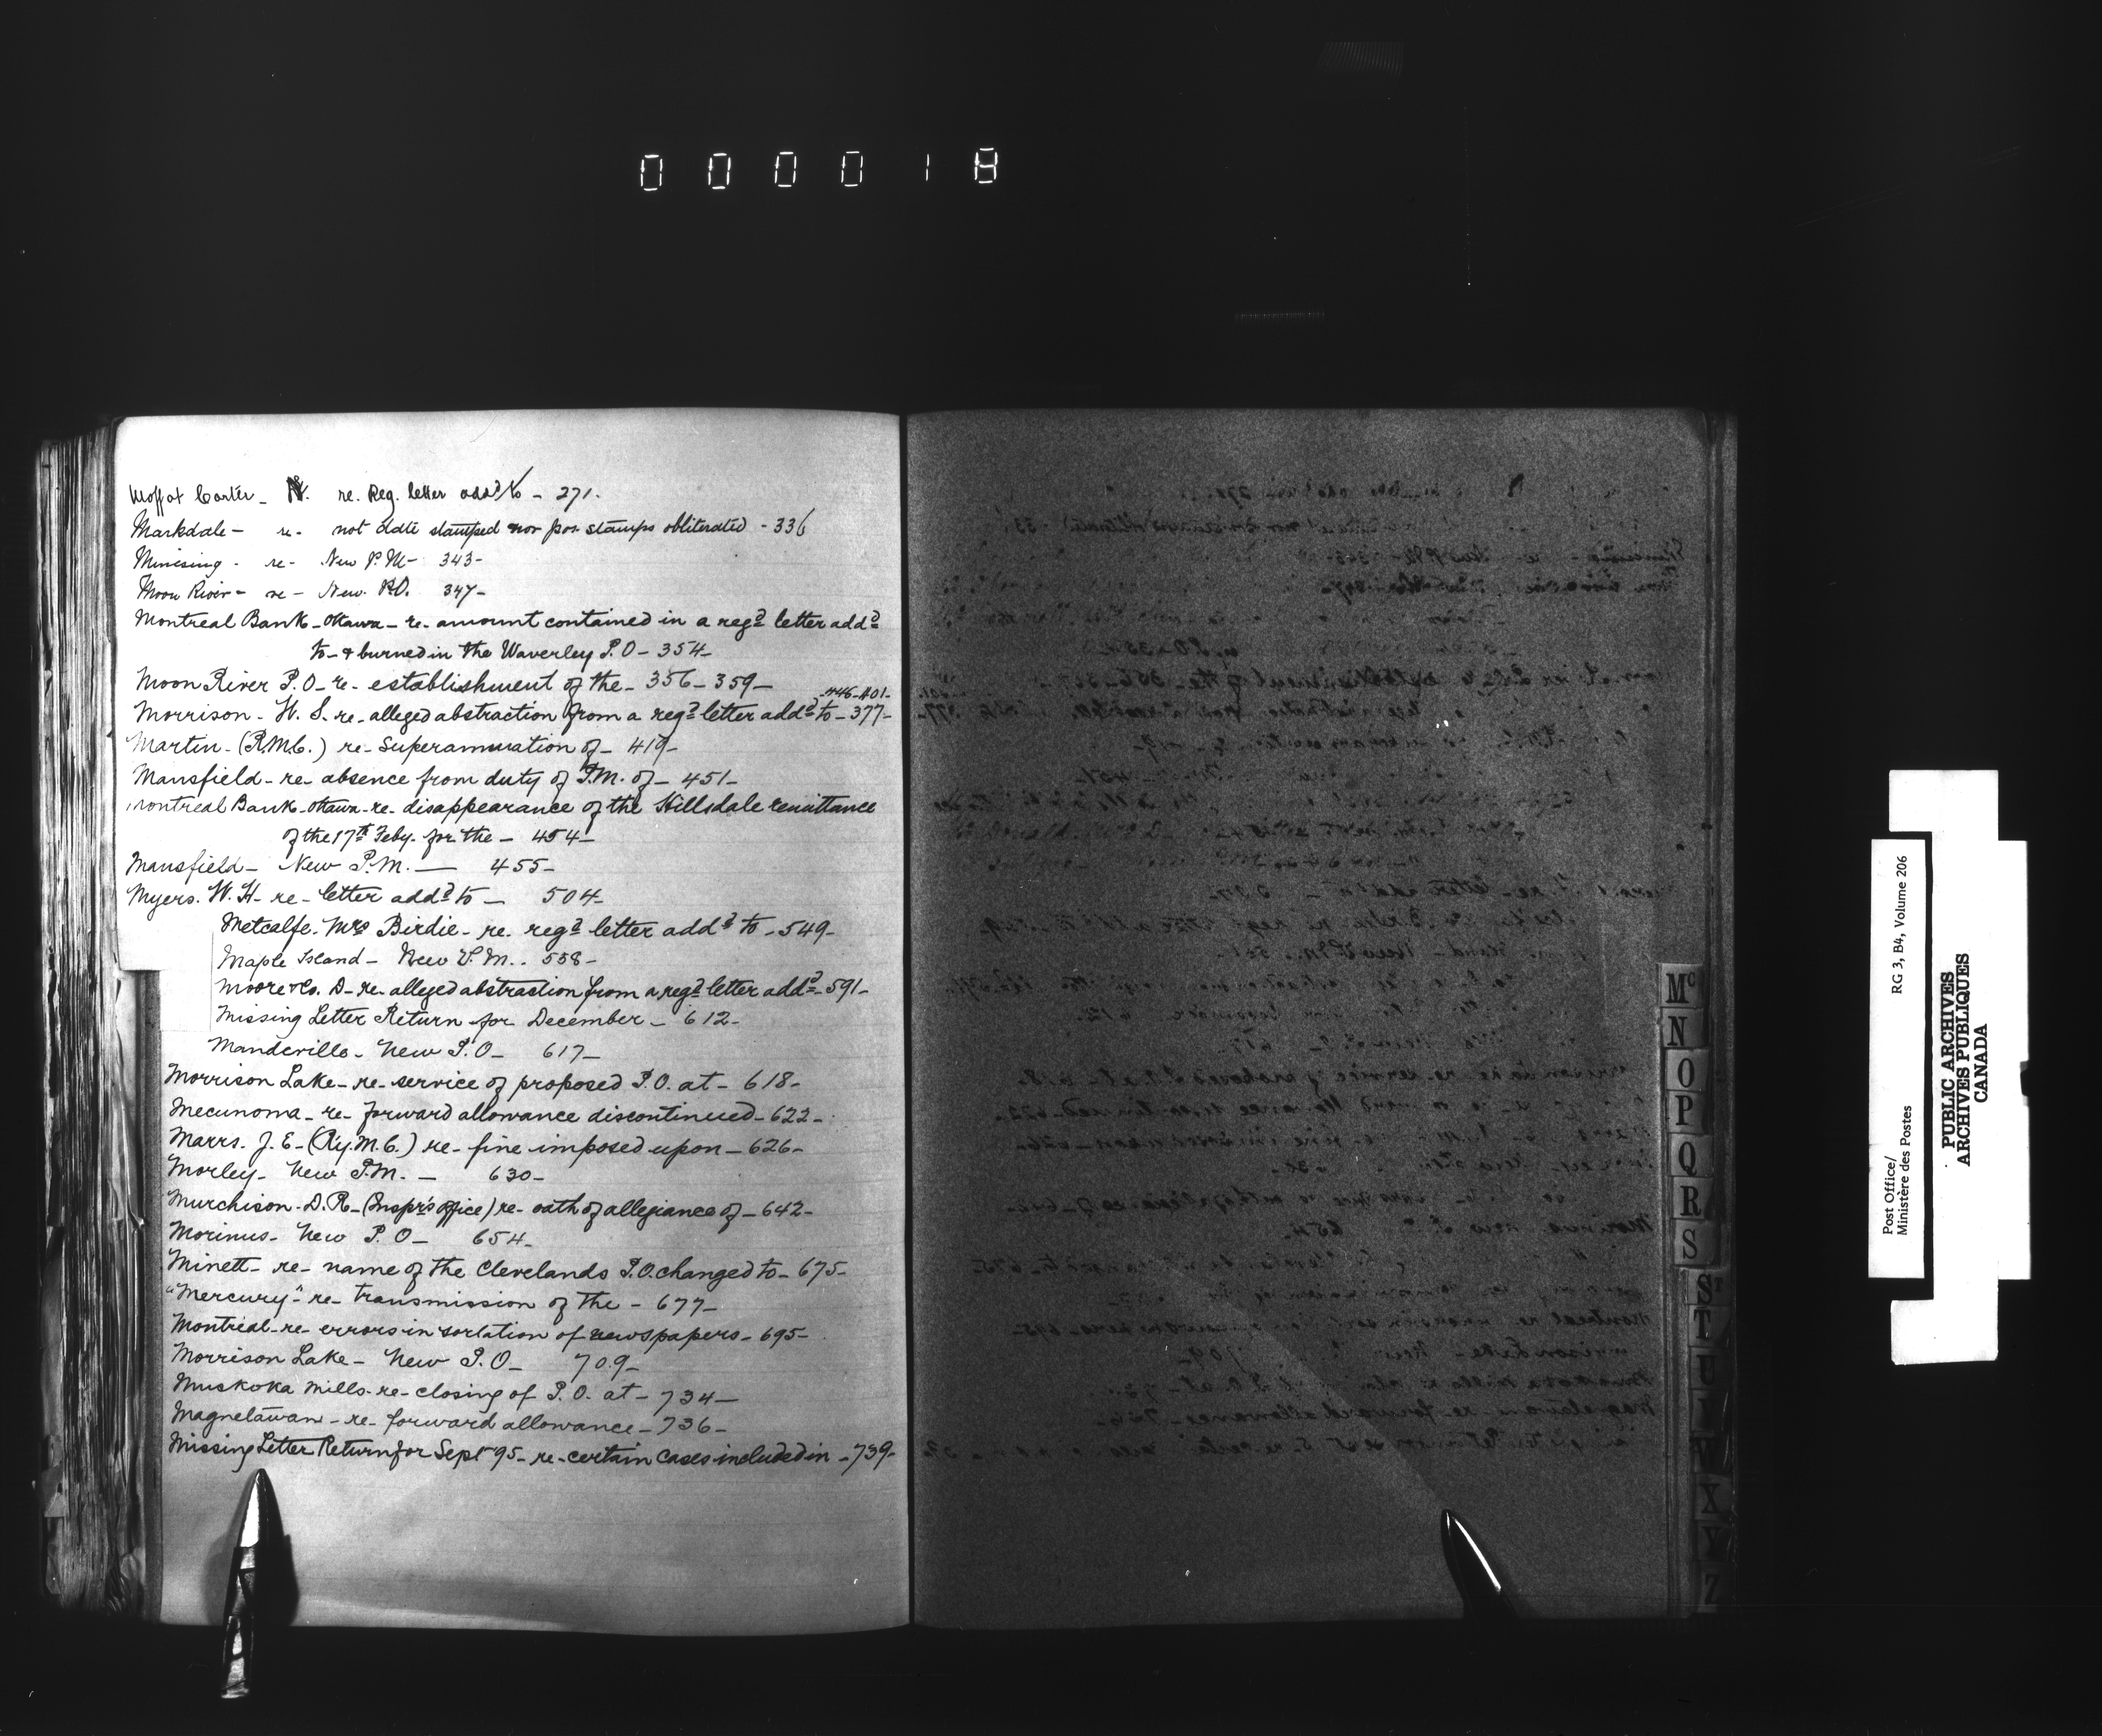 000018
Moffat Carter - N. re. Reg. letter add^d to - 271.
Markdale - re - not date stamped nor pos. stamps obliterated - 336
Minising - re - New P.M - 343 -
Moon River - re - New P.O. 347 -
Montreal Bank - Ottawa - re - amount contained in a reg^d letter add^d
to - & burned in the Waverley P.O - 354 -
Moon River P.O - re - establishment of the - 356 - 359 -
- 446 - 401 -
Morrison - W. S. re - alleged abstraction from a reg^d letter add^d to - 377 -
Martin - (R.M.C.) re - Superannuation of - 419 -
Mansfield - re - absence from duty of P.M. of - 451 -
Montreal Bank - Ottawa - re - disappearance of the Hillsdale remittance
of the 17th Feby. for the - 454 -
Mansfield - New P.M. - 455 -
Myers. W. H - re - letter add^d to - 504 -
Metcalfe. Mrs Birdie - re. reg^d letter add^d to - 549 -
Maple Island - New P.M. - 558 -
Moore & Co. D - re - alleged abstraction from a reg^d letter add^d - 591 -
Missing Letter Return for December - 612 -
Mandeville - New P.O - 617 -
Morrison Lake - re - service of proposed P.O. at - 618 -
Mecunoma - re - forward allowance discontinued - 622 -
Marrs. J. E - (Ry. M. C.) re - fine imposed upon - 626 -
Morley - New P.M. - 630 -
Murchison - D. R - (Inspr's office) re - oath of allegiance of - 642 -
Morinus - New P.O - 654 -
Minett - re - name of the Clevelands P.O. changed to - 675 -
"Mercury" - re - transmission of the - 677 -
Montreal - re - errors in sortation of newspapers - 695 -
Morrison Lake - New P.O - 709 -
Muskoka Mills - re - closing of P.O. at - 734 -
Magnetawan - re - forward allowance - 736 -
Missing Letter Return for Sept '95 - re - certain cases included in - 739 -
Mc
N
O
P
Q
R
S
St
T
U
V
W
X
Y
Z
Post Office/
Ministère des Postes
RG 3, B4, Volume 206
PUBLIC ARCHIVES
ARCHIVES PUBLIQUES
CANADA